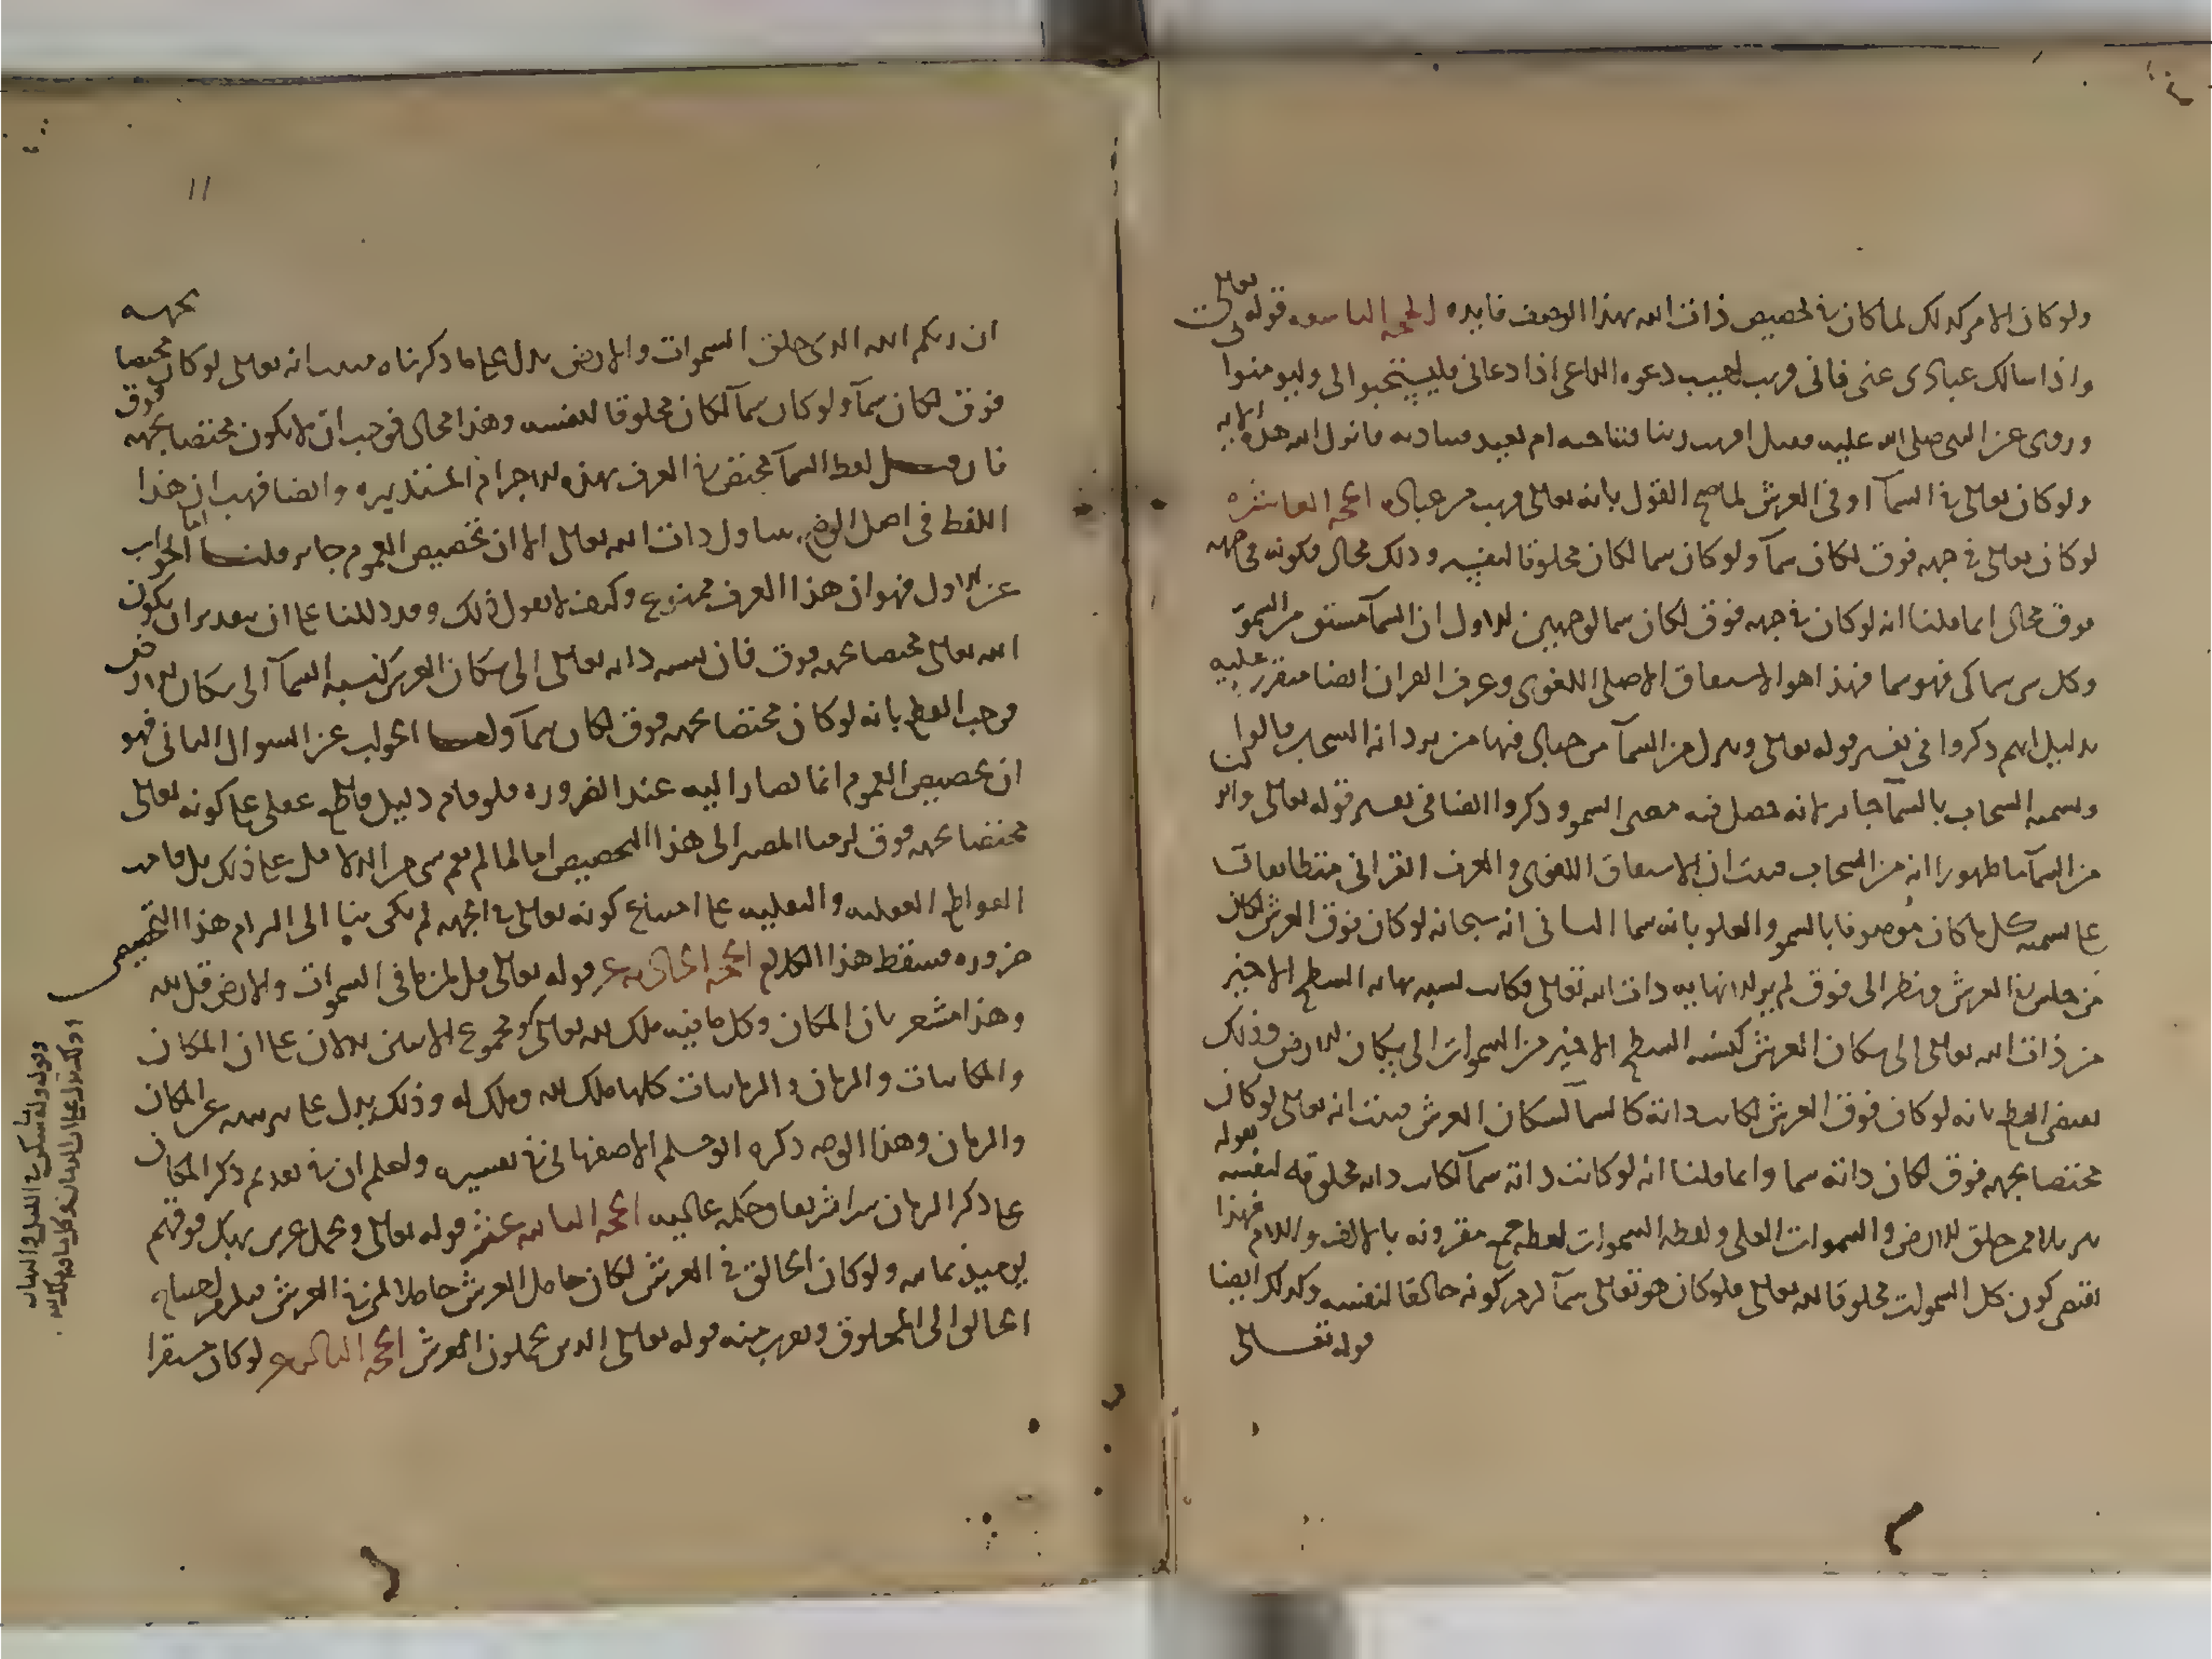 ولو كان الامر كذلك لما كان في تخصيص ذات الله بهذا الوصف فايده الحجه التاسعه قوله تعالى
واذا سالك عبادى عنى فانى قريب اجيب دعوه الداعى اذا دعانى فليستجيبوا لى وليومنوا بى
وروى عن النبى صلى الله عليه وسلم اقريب ربنا فنناجيه ام بعيد فنناديه فانزل الله هذه الايه
ولو كان تعالى في السمآ او فى العرش لما صح القول بانه تعالى قريب من عباده الحجه العاشره
لو كان تعالى فى جهه فوق لكان سمآ ولو كان سما لكان مخلوقا لنفسه وذلك محال فكونه فى جهه
فوق محال انما قلنا انه لو كان في جهه فوق لكان سما لوجهين الاول ان السمآ مشتق من السموّ
وكل من سماك فهو سما فهذا هو الاشتقاق الاصلى اللغوى وعرف القران ايضا متقرر عليه
بدليل انهم ذكروا فى تفسير قوله تعالى وينزل من السمآ من جبال فيها من برد انه السحاب قالوا
وتسميه السحاب بالسمآ جايز لانه حصل فيه معنى السمو وذكروا ايضا فى تفسير قوله تعالى وانزلنا
من السمآ ما طهورا انه من السحاب فثبت ان الاشتقاق اللغوى والعرف القرانى متطابقان
على تسميه كل ما كان موصوفا بالسمو والعلو بانه سما الثانى انه سبحانه لو كان فوق العرش لكان
من جلس في العرش ونظر الى فوق لم ير الا نهايه ذات الله تعالى فكانت نسبه نهايه السطح الاخير
من ذات الله تعالى الى سكان العرش كنسبه السطح الاخير من السموات الى سكان الارض وذلك
يقتضى القطع بانه لو كان فوق العرش لكانت ذاته كالسما لسكان العرش فثبت انه تعالى لو كان
مختصا بجهه فوق لكان ذاته سما وانما قلنا انه لو كانت ذاته سمآ لكانت ذاته مخلوقه لقوله
تنزيلا ممن خلق الارض والسموات العلى ولفظه السموات لفظه جمع مقرونه بالالف واللام فهذا
يقتضى كون كل السموات مخلوقا لله تعالى فلو كان هو تعالى سمآ لزم كونه خالقا لنفسه وكذلك ايضا
قوله تعالى
11
ان ربكم الله الذى خلق السموات والارض يدل على ما ذكرناه فثبت انه تعالى لو كان مختصا بجهه
فوق لكان سمآ ولو كان سمآ لكان مخلوقا لنفسه وهذا محال فوجب ان لا يكون مختصا بجهه فوق
فان قيل لفظ السمآ مختص في العرف بهذه الاجرام المستديره وايضا فهب ان هذا
اللفظ فى اصل الوضع يتناول ذات الله تعالى الا ان تخصيص العموم جايز قلنا اما الجواب
عن الاول فهو ان هذا العرف ممنوع وكيف لا نقول ذلك وقد دللنا على ان بتقدير ان يكون
الله تعالى مختصا بجهه فوق فان نسبه ذاته تعالى الى سكان العرش كنسبه السمآ الى سكان الارض
فوجب القطع بانه لو كان مختصا بجهه فوق لكان سمآ واما الجواب عن السوال الثانى فهو
ان تخصيص العموم انما يصار اليه عند الضروره فلو قام دليل قاطع عقلى على كونه تعالى
مختصا بجهه فوق لزمنا المصير الى هذا التخصيص اما لما لم يقم شى من الدلايل على ذلك بل قامت
القواطع العقليه والنقليه على امتناع كونه تعالى في الجهه لم يكن بنا الى التزام هذا التخصيص
ضروره فسقط هذا الكلام الحجه الحاديه عشر قوله تعالى قل لمن ما فى السموات والارض قل لله
وهذا مشعر بان المكان وكل ما فيه ملك لله تعالى ومجموع الايتين يدلان على ان المكان
والمكانيات والزمان والزمانيات كلها ملك لله وملك له وذلك يدل على تنزيهه عن المكان
والزمان وهذا الوجه ذكره ابو مسلم الاصفهانى في تفسيره واعلم ان في تقديم ذكر المكان
على ذكر الزمان سرا شريفا وحكمه عاليه الحجه الثانيه عشر قوله تعالى ويحمل عرش ربك فوقهم
يوميذ ثمانيه ولو كان الخالق فى العرش لكان حامل العرش حاملا لمن في العرش فيلزم احتياج
الخالق الى المخلوق ويقرب منه قوله تعالى الذين يحملون العرش الحجه الثالثه عشر لو كان مستقرا
وقوله وله ما سكن في الليل والنهار
وذلك يدل على ان الزمان وكل ما فيه ملك لله